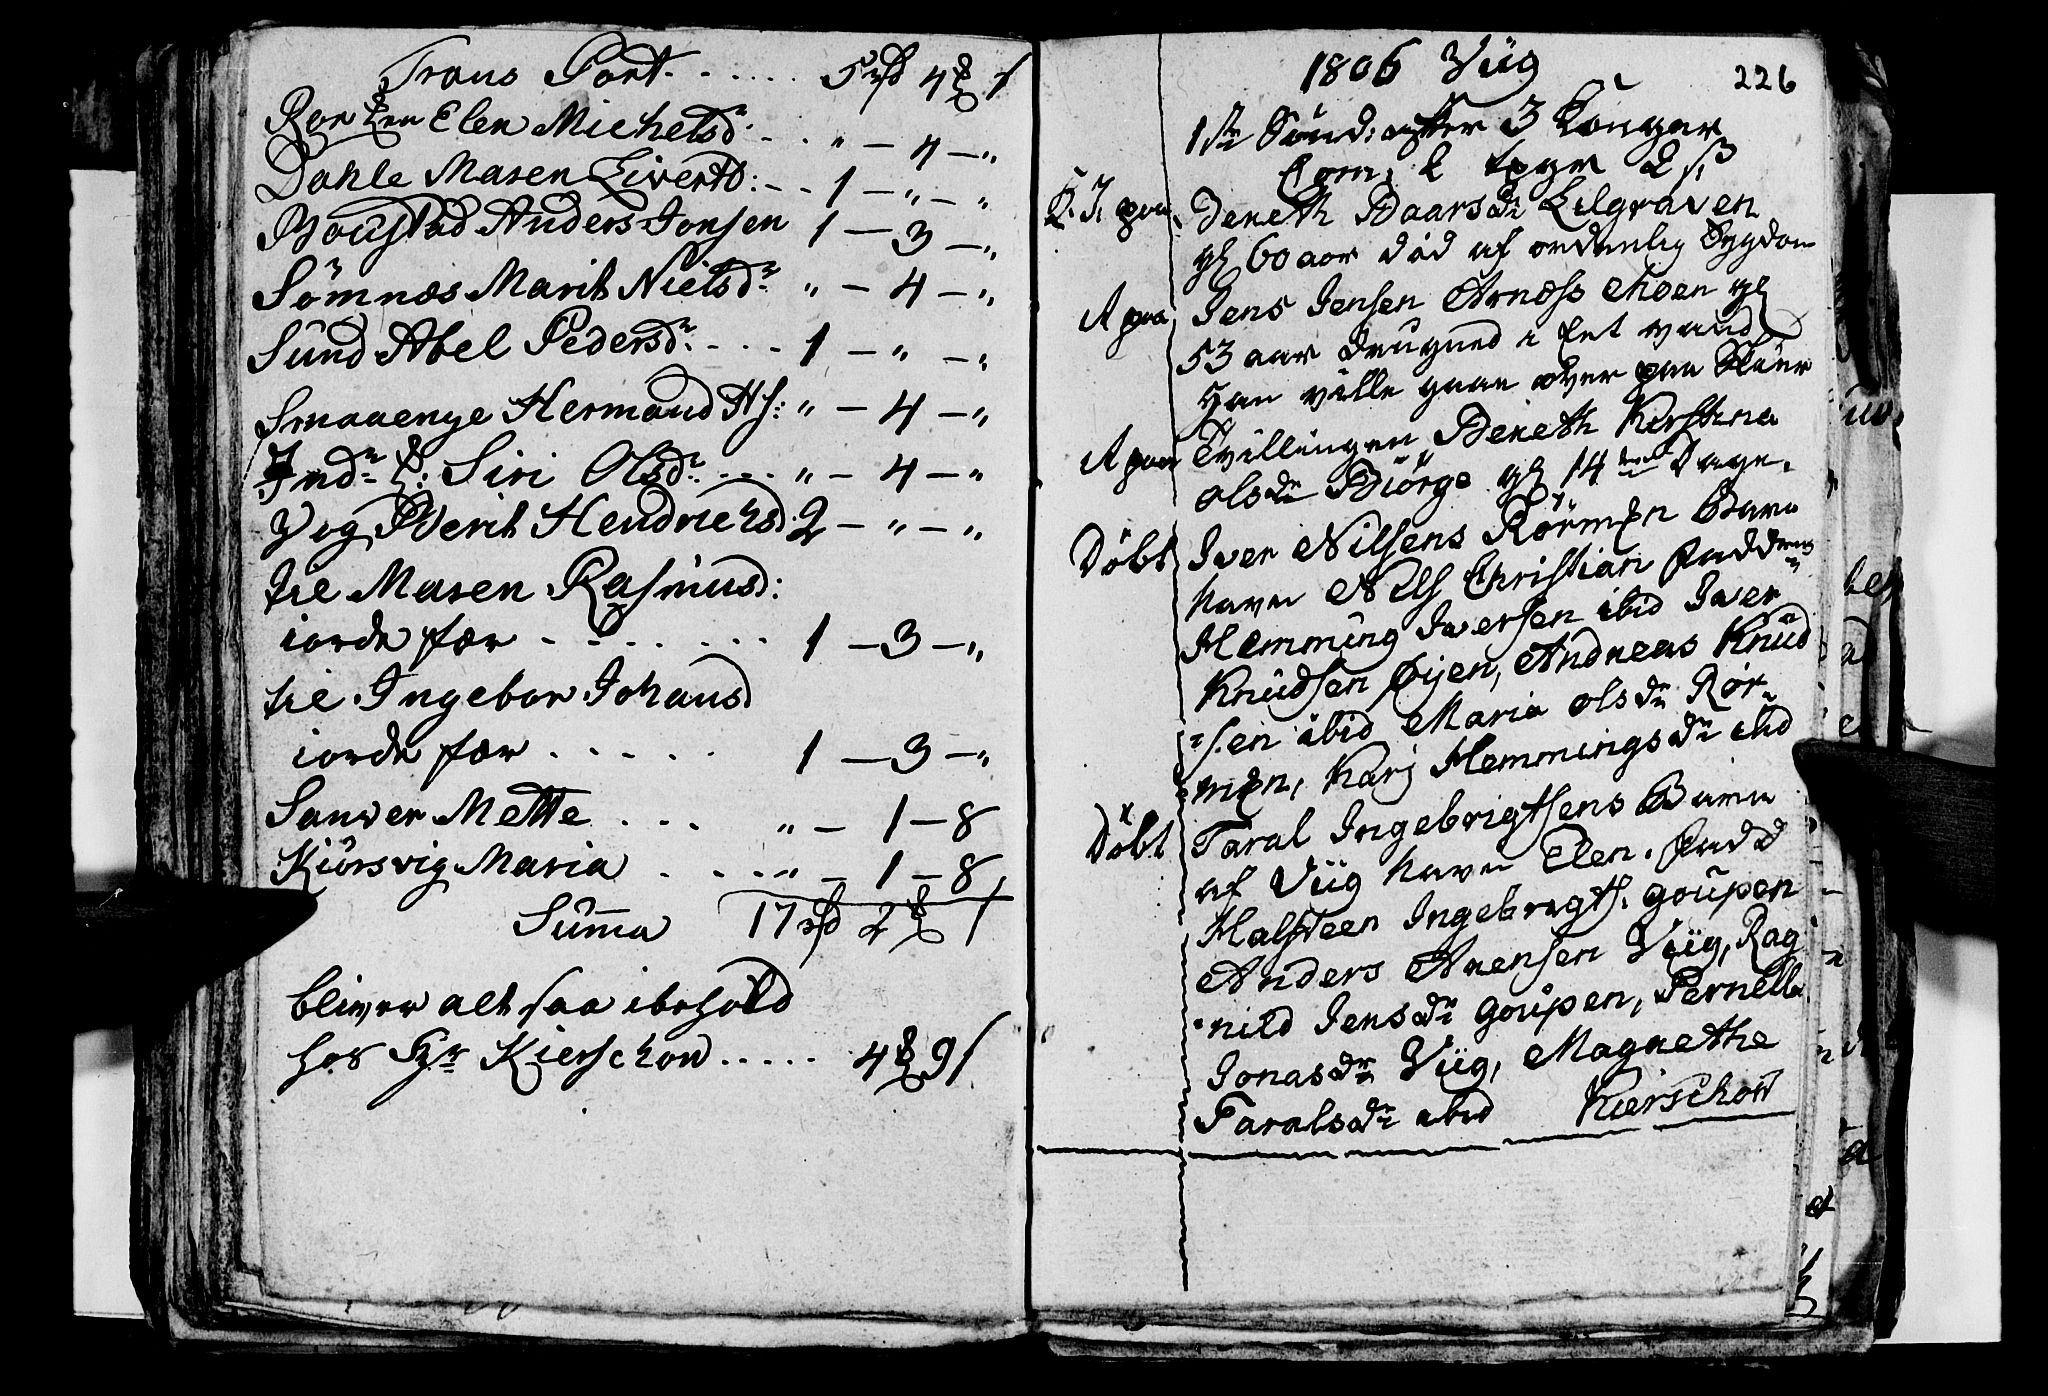 Trans Port . . . . . . 5 rd 4 1
Elen Michelsd: - - " — 4 — "
Dahle Masen Sivertd: - - 1 — " — "
Anders Jonsen 1 — 3 — "
Sömnæs Marit Nielsd: " — 4 — "
Sund Abel Pedersd: - - - 1 — " — "
Smaaenge Hermand Hs: " — 4 — "
Ind: Siri Olsd: - - - " — 4 — "
Vog Berit Hendrichsd: 2 — " — "
til Masen Rasmusd:
iorde fær - - - - - - - 1 — 3 — "
til Ingebor Johansd
iorde fær - - - - - - 1 — 3 — "
Sanver Mette . . . " — 1 — 8
Kiörsvig Maria . . . . " — 1 — 8
Summa 17 rd 2 1
bliver alt saa ibehold
hos Hr Kierschow . . . . . 4 9
226
1806 Viig
1ste Sönd: efter 3 Konger
Com:
Bereth Baarsdr Lilgraven
gl 60 aar död af ordenlig Sygdom
A paa Jens Jensen Arnæss Moen gl
53 aar drugned i Et vand
han ville gaae over paa
A paa Tvillingen Bereth Kirstina
olsdr Biörge gl 14 Dage.
Döbt Iver Nilsens Rörmÿr Barn
havn Nils Christian Faddrene
Hemming Iversen ibid Iver
Knudsen Öijen, Andreas Knud
-sen ibid Maria olsdr Rör-
Kari Hemmingsdr ibid
Döbt Taral Ingebrigtsens Barn
af Viig havn Elen. Fadd
Halsteen Ingebrigts: goupen
Anders Arensen Viig, Rag
-nild Jensdr goupen, Pernelle
Jonasdr Viig, Magnethe
Taralsdr ibid Kierschow